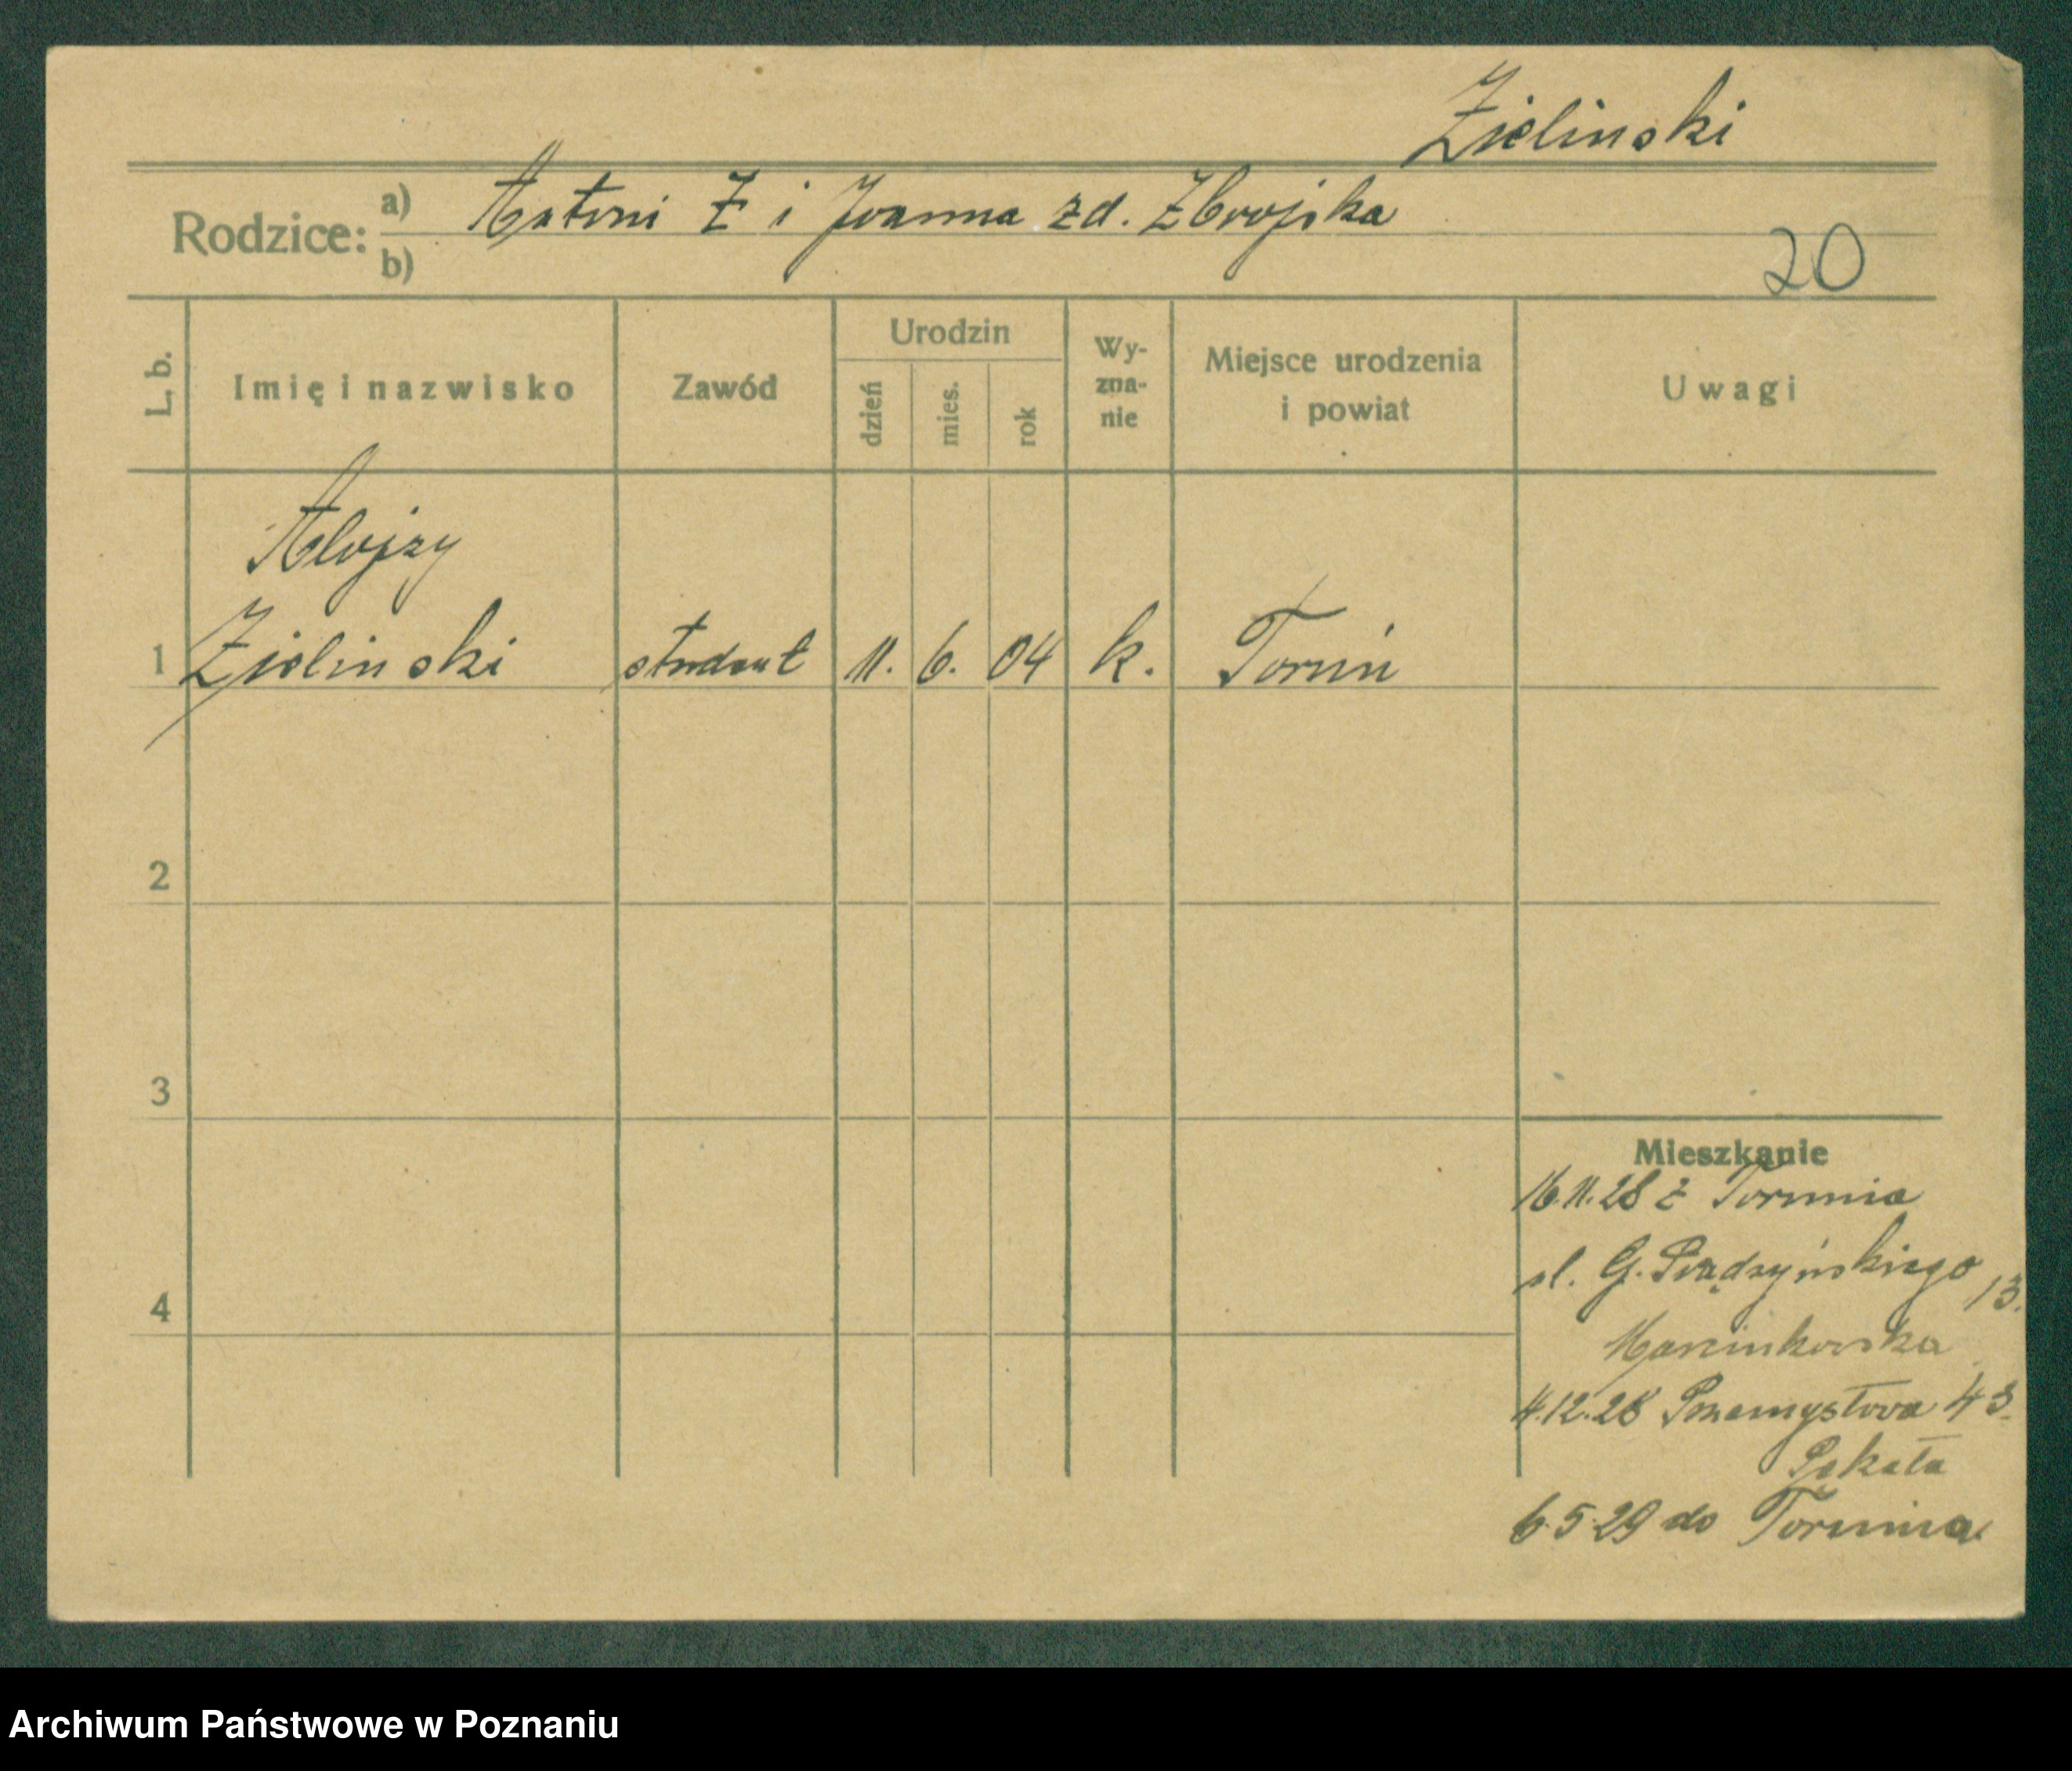 Zielinski
Rodzice: a) Antoni Z i Joanna zd. Zbrojska
b)
20
L. b.
Imię i nazwisko
Zawód
Urodzin
dzień
mies.
rok
Wy-
zna-
nie
Miejsce urodzenia
i powiat
Uwagi
Alojzy
1 Zielinski student 11. 6. 04 k. Toruń
2
3
4
Mieszkanie
16.11.28 z Torunia
pl. G. Prądzyńskiego 13.
Marcinkowska
4.12.28 Przemysłowa 43.
Pękata
6.5.29 do Torunia
Archiwum Państwowe w Poznaniu